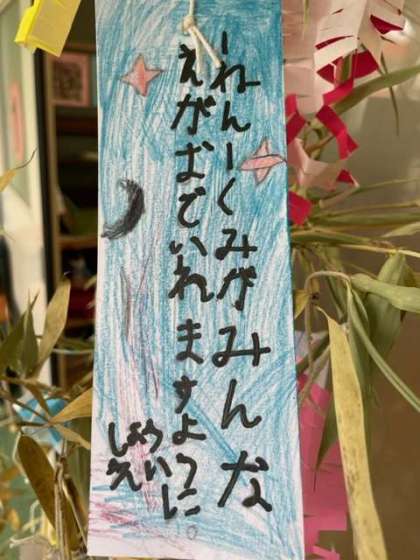 一ねん一くみがみんな
えがおでいれますように。
しょう
えい